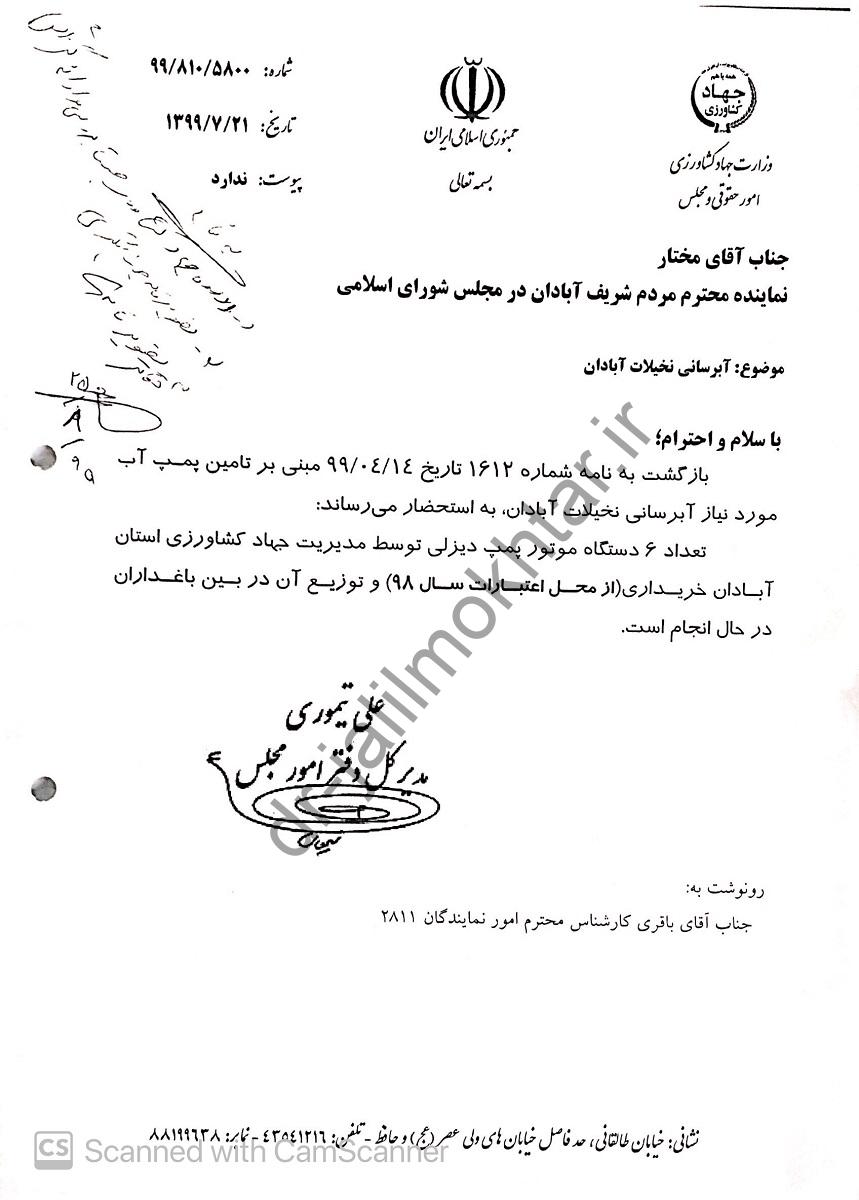 همه با هم
جهاد
کشاورزی
وزارت جهاد کشاورزی
امور حقوقی و مجلس
جمهوری اسلامی ایران
بسمه تعالی
شماره: ۹۹/۸۱۰/۵۸۰۰
تاریخ: ۱۳۹۹/۷/۲۱
پیوست: ندارد
جناب آقای مختار
نماینده محترم مردم شریف آبادان در مجلس شورای اسلامی
موضوع: آبرسانی نخیلات آبادان
با سلام و احترام؛
بازگشت به نامه شماره ۱۶۱۲ تاریخ ۹۹/۰۴/۱۴ مبنی بر تامین پمپ آب
مورد نیاز آبرسانی نخیلات آبادان، به استحضار می‌رساند:
تعداد ۶ دستگاه موتور پمپ دیزلی توسط مدیریت جهاد کشاورزی استان
آبادان خریداری(از محل اعتبارات سال ۹۸) و توزیع آن در بین باغداران
در حال انجام است.
علی تیموری
مدیر کل دفتر امور مجلس
رونوشت به:
جناب آقای باقری کارشناس محترم امور نمایندگان ۲۸۱۱
نشانی: خیابان طالقانی، حد فاصل خیابان های ولی عصر (عج) و حافظ - تلفن: ۴۳۵۴۱۲۱۶ - نمابر: ۸۸۱۹۹۶۳۸
dr-jalilmokhtar.ir
CS Scanned with CamScanner